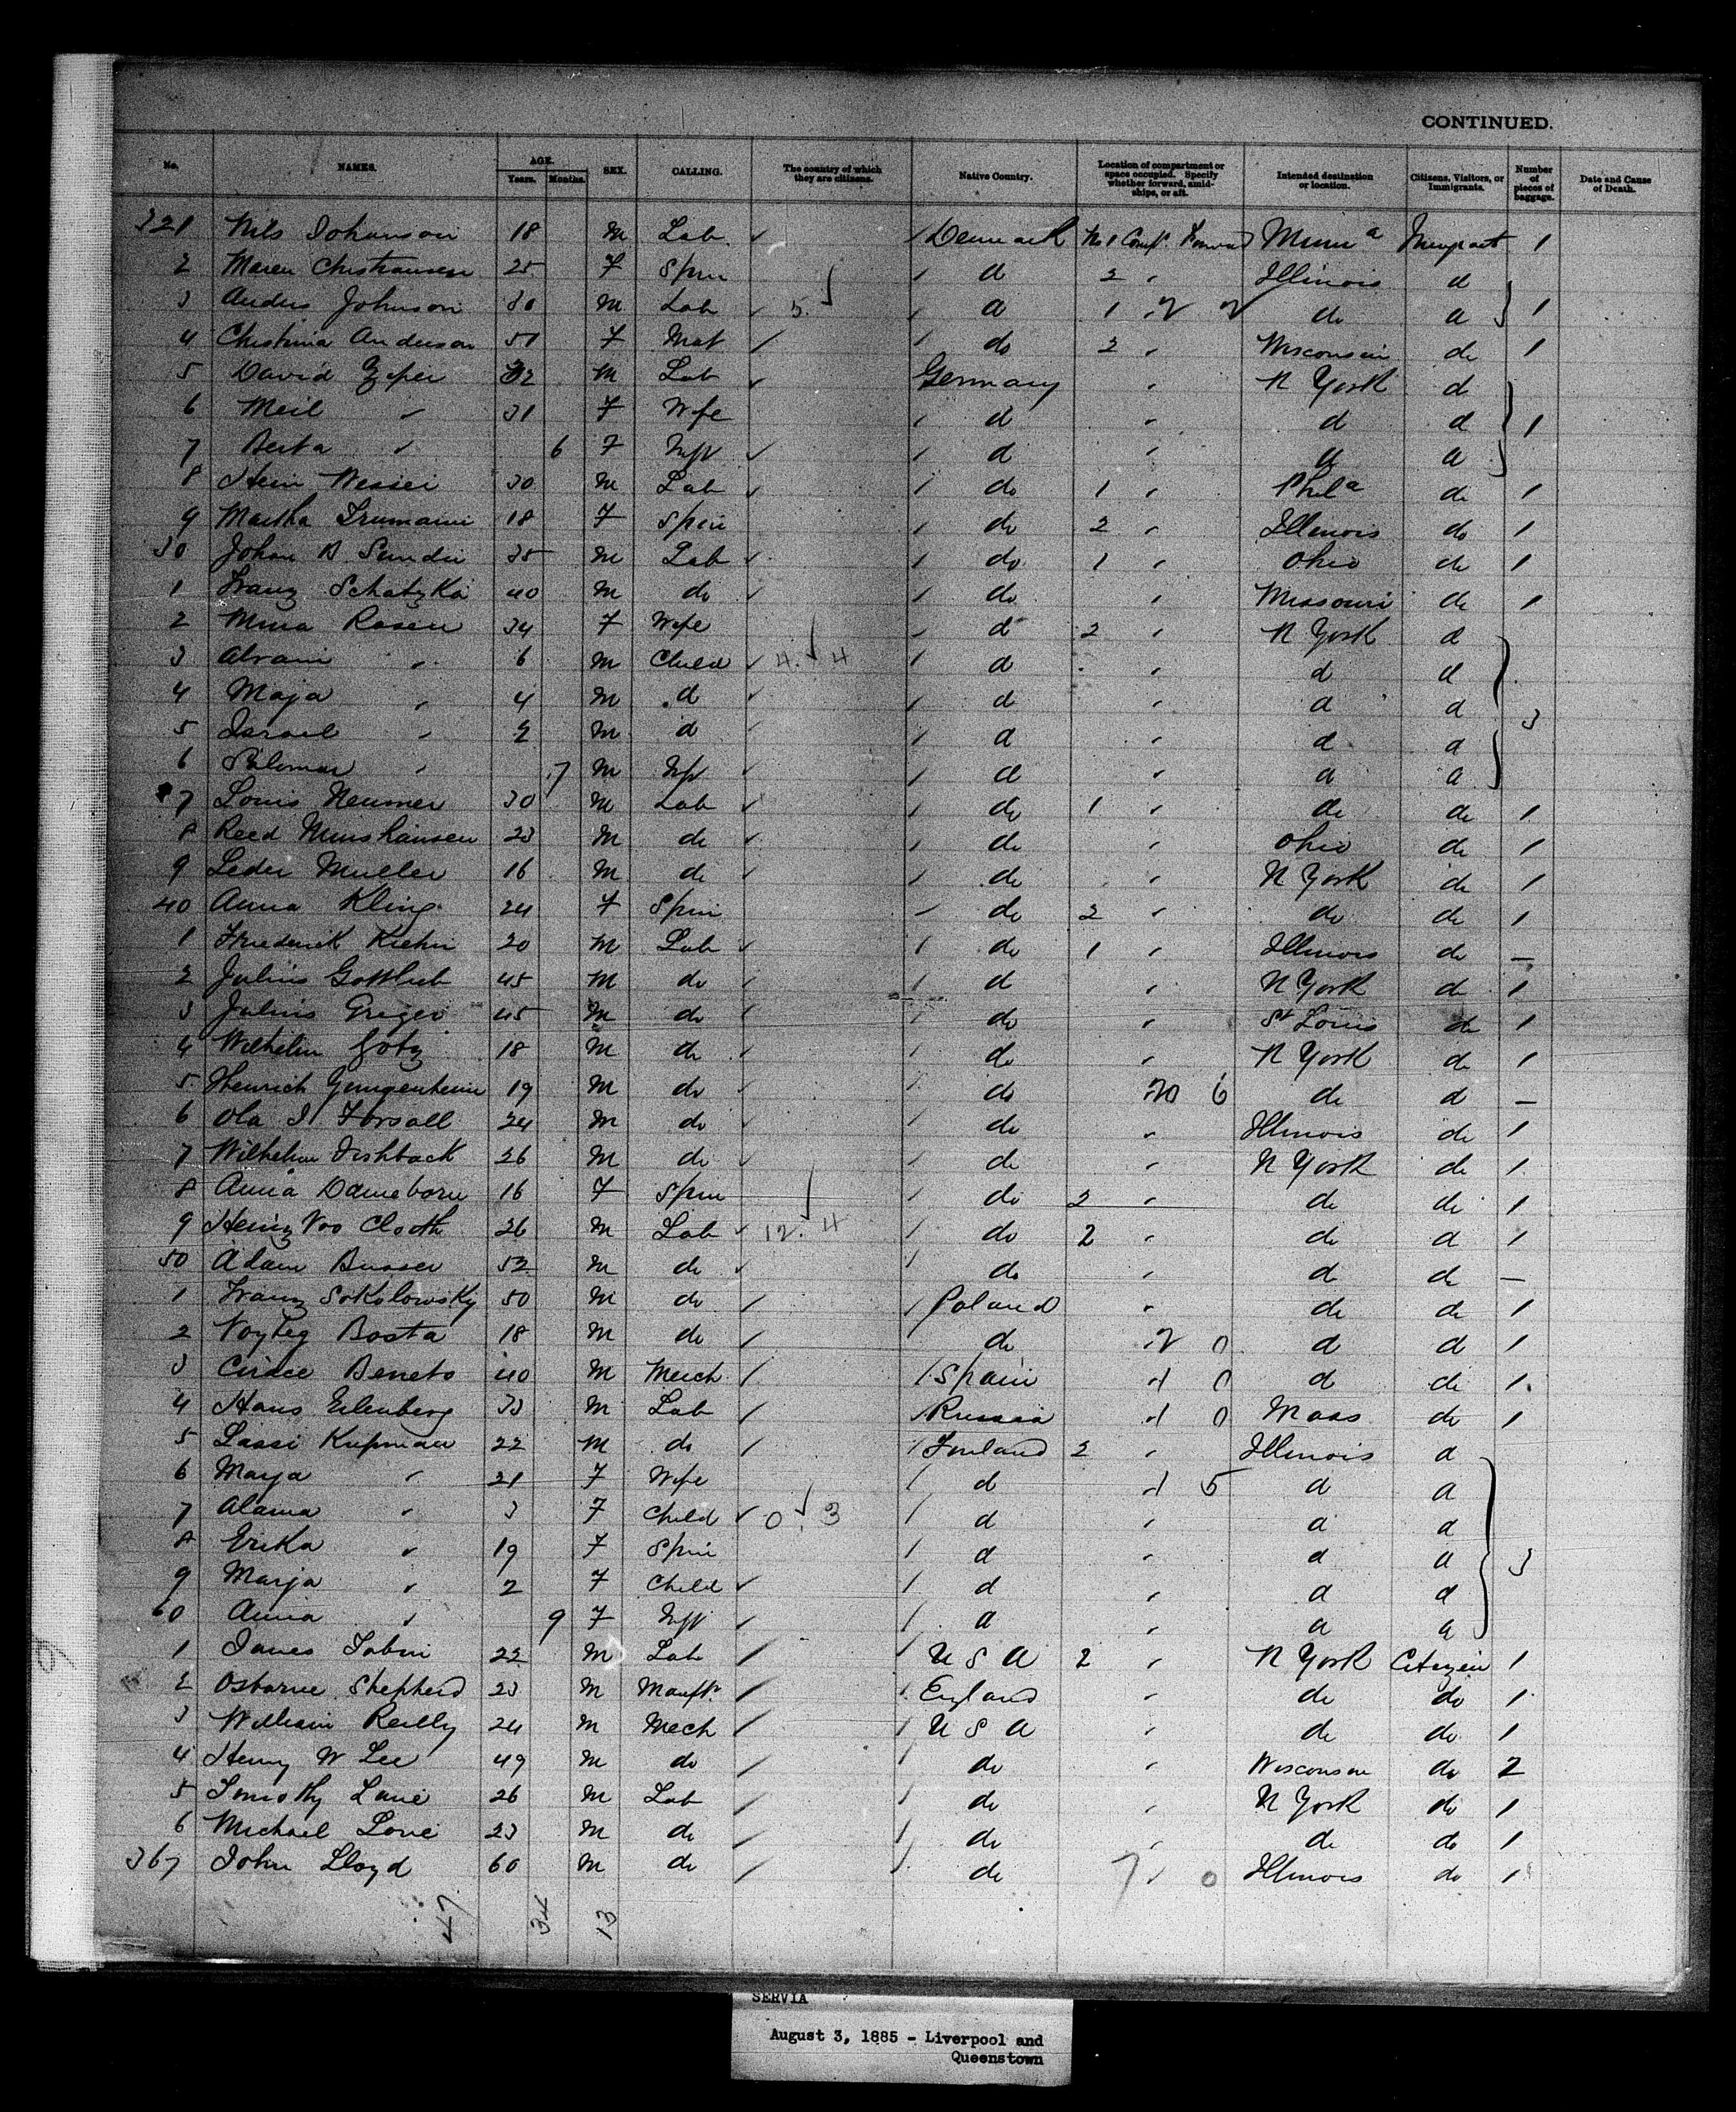 CONTINUED.
No. NAMES. AGE. Years. Months. SEX. CALLING. The country of which they are citizens. Native Country. Location of compartment or space occupied. Specify whether forward, amidships, or aft. Intended destination or location. Citizens, Visitors, or Immigrants. Number of pieces of baggage. Date and Cause of Death.
321 Nils Johanson 18 M Lab Denmark No 1 Compt. Forward Minna 1
2 Maren Christiansen 25 F Spin d 2 " Illinois d
3 Anders Johnson 30 M Lab 5 d 1 " do d 1
4 Christina Anderson 51 F Mat do 2 " Wisconsin do 1
5 David 32 M Lab Germany " N York d
6 Meil " 31 F Wife d " d d 1
7 Berta " 6 F Inft d " d d
8 Hein 30 M Lab do 1 " Phila do 1
9 Martha 18 F Spin do 2 " Illinois do 1
30 Johan B 35 M Lab do 1 " Ohio do 1
1 Franz Schatzka 40 M do do " Missouri do 1
2 Mina Rosen 34 F Wife d 2 " N York d
3 Abram " 6 M Child 4 4 d " d d
4 Maja " 4 M d d " d d 3
5 Israel " 2 M d d " d d
6 " 7 M Inft d " d d
7 Louis Neumer 30 M Lab do 1 " do do 1
8 Reed Munshausen 23 M do do " Ohio do 1
9 Leder Mueller 16 M do do " N York do 1
40 Anna Kling 24 F Spin do 2 " do do 1
1 Friederick Kiehn 20 M Lab do 1 " Illinois do —
2 Julius Gottlieb 45 M do d " N York do 1
3 Julius 45 M do do " St Louis do 1
4 Wilhelm Gotz 18 M do do " N York do 1
5 Heinrich 19 M do do 20 6 do d —
6 Ola I Forsall 24 M do do " Illinois do 1
7 Wilhelm Fishback 26 M do do " N York do 1
8 Anna Danneborn 16 F Spin do 2 " do do 1
9 Heinz Clooth 26 M Lab 12 4 do 2 " do d 1
50 Adam Busser 52 M do do " d do —
1 Franz Sokolowsky 50 M do Poland " do do 1
2 Bosta 18 M do do 2 0 d d 1
3 Beneto 40 M Merch Spain 1 0 d do 1
4 Hans Eilenberg 33 M Lab Russia 1 0 Mass do 1
5 Lassi Kupman 22 M do Finland 2 " Illinois d
6 Marja " 21 F Wife d 1 5 d d
7 Alama " 3 F Child 0 3 d " d d
8 Erika " 19 F Spin d " d d 3
9 Marja " 2 F Child d " d d
60 Anna " 9 F Inft d " d d
1 James Tobin 22 M Lab U S A 2 " N York Citizen 1
2 Osborne Shepherd 23 M Manftr England " do do 1
3 William Reilly 24 M Mech U S A " do do 1
4 Henry W Lee 49 M do do " Wisconsin do 2
5 Timothy Lane 26 M Lab do " N York do 1
6 Michael Lane 23 M do do " do do 1
367 John Lloyd 60 M do do 7 " 0 Illinois do 1
47 34 13
SERVIA
August 3, 1885 - Liverpool and
Queenstown